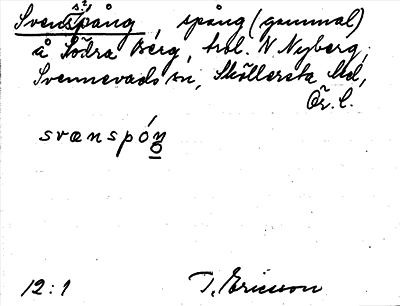 Svenspång, spång (gammal)
å Södra Berg, hrl. N Nyberg,
Svennevads sn, Sköllersta hd,
Ör. l.
svænspón
12:1 T. Ericsson